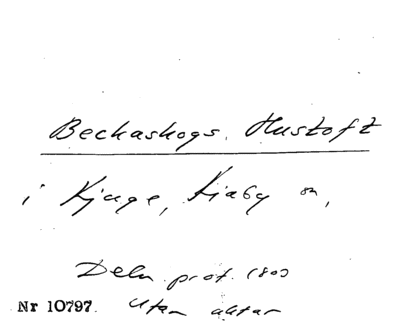 Beckaskogs Hustoft
i Kjuge, Kiaby sn,
Deln. prot. 1803
Nr 10797. Utan aktar